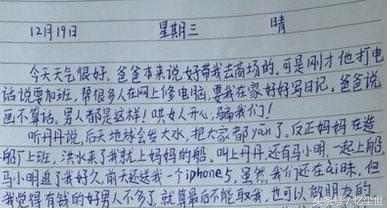 12月19日 星期三 晴
今天天气很好。爸爸本来说好带我去商场的,可是刚才他打电
话说要加班,帮很多人在网上修电脑,要我在家好好写日记,爸爸说
画不算话,男人都是这样!哄女人开心,骗我们!
听丹丹说,后天地球会出大水,把大家都yan了,反正妈妈在造
船厂上班,洪水来了我就上妈妈的船,叫上丹丹,还有马小明一起上船,
马小明追了我好久,前天还送我一个iphone5,虽然我们还在冷战,但
我觉得有钱的好男人不多了,就算最后不能取我,也可以做朋友的,
头条号/忆尘世